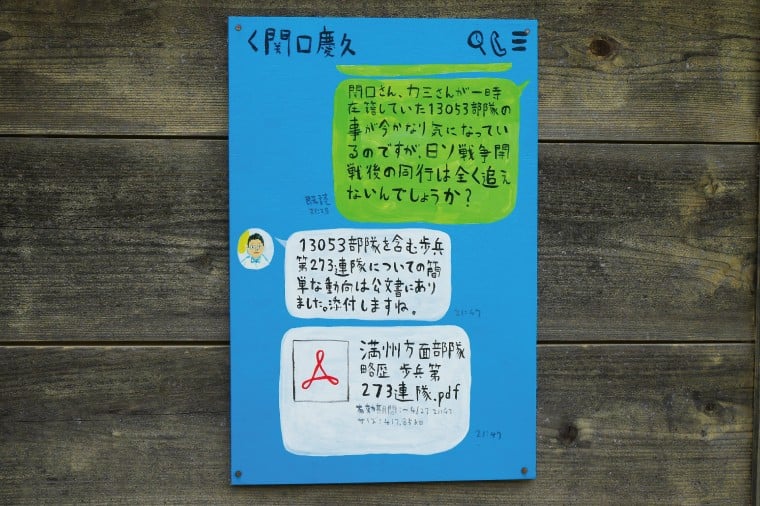 く関口慶久
関口さん、カミさんが一時
在籍していた13053部隊の
事が今かなり気になってい
るのですが、日ソ戦争開
戦後の同行は全く追え
ないんでしょうか?
既読
21:25
13053部隊を含む歩兵
第273連隊についての簡
単な動向は公文書にあり
ました。添付しますね。
21:47
満州方面部隊
略歴 歩兵第
273連隊.pdf
有効期間:〜4/27 21:47
サイズ:417.85KB
21:47